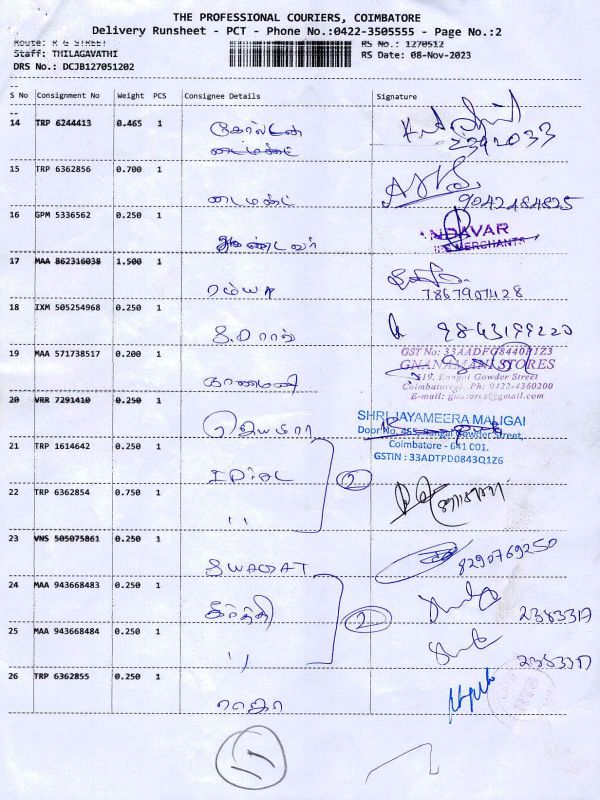 THE PROFESSIONAL COURIERS, COIMBATORE
Delivery Runsheet - PCT - Phone No.:0422-3505555 - Page No.:2
Route: R G STREET
RS No.: 1270512
Staff: THILAGAVATHI
RS Date: 08-Nov-2023
DRS No.: DCJB127051202
S No Consignment No Weight PCS Consignee Details Signature
14 TRP 6244413 0.465 1
கோல்டன்
டைமண்ட்
15 TRP 6362856 0.700 1
டைமண்ட்
9042484825
16 GPM 5336562 0.250 1
ஆண்டவர்
ANDAVAR
MERCHANTS
17 MAA 862316038 1.500 1
ரம்யா
7867907428
18 IXM 505254968 0.250 1
9843199220
19 MAA 571738517 0.200 1
GST No: 33AADFG8440P1Z3
GNANAMANI STORES
519, Rangai Gowder Street
Coimbatore-1. Ph: 0422-4360200
E-mail: gmstores@gmail.com
20 VRR 7291410 0.250 1
ஜெயமீரா
SHRI JAYAMEERA MALIGAI
Door No. 455, Rangai Gowder Street,
Coimbatore - 641 001.
GSTIN : 33ADTPD0843Q1Z6
21 TRP 1614642 0.250 1
2
22 TRP 6362854 0.750 1
"
23 VNS 505075861 0.250 1
SWAGAT
8290769250
24 MAA 943668483 0.250 1
கீர்த்தி
2
2383317
25 MAA 943668484 0.250 1
"
2383317
26 TRP 6362855 0.250 1
ராஜா
11